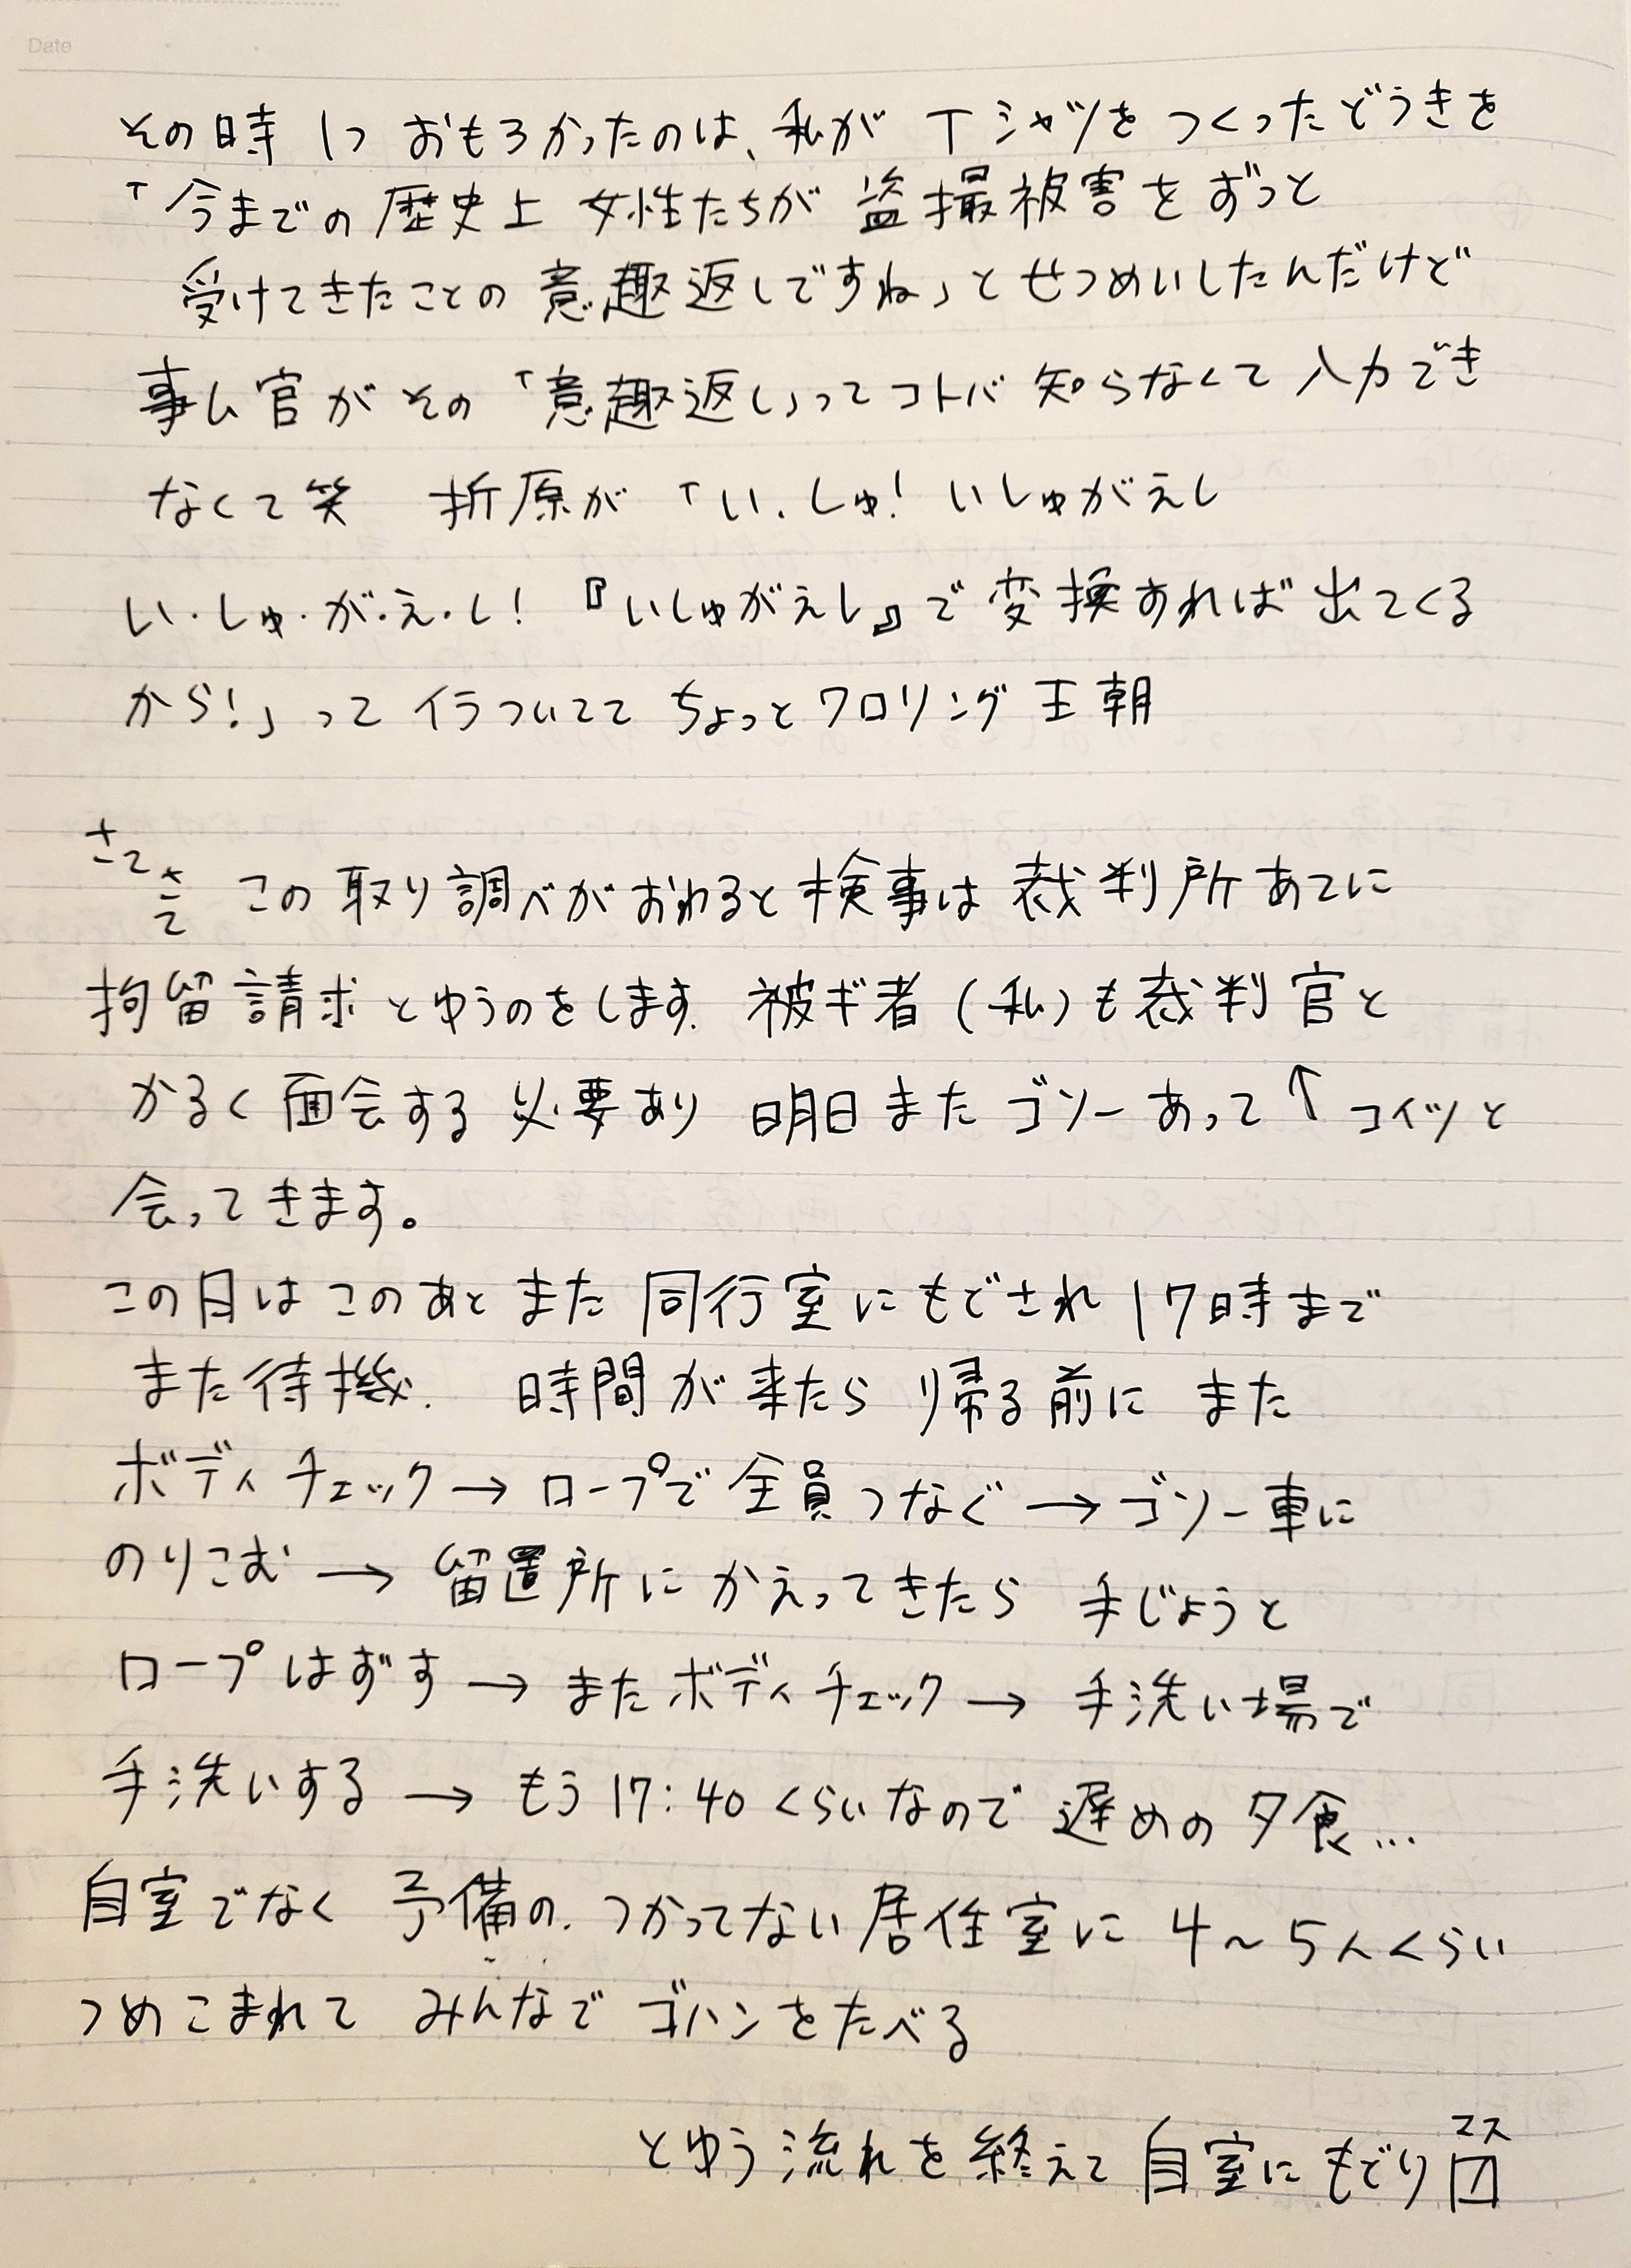 Date
その時 1つ おもろかったのは、私が Tシャツを つくったどうきを
「今までの 歴史上 女性たちが 盗撮被害を ずっと
受けてきたことの 意趣返しですね」と せつめいしたんだけど
事ム官が その「意趣返し」って コトバ 知らなくて 入力でき
なくて笑 折原が 「い.しゅ! いしゅがえし
い・しゅ・が・え・し! 『いしゅがえし』で 変換すれば 出てくる
から!」って イラついてて ちょっと ワロリング 王朝
さてさて この 取り調べが おわると 検事は 裁判所 あてに
拘留請求 とゆうのをします. 被ギ者 (私)も 裁判官と
かるく 面会する 必要あり 明日また ゴソー あって ↑ コイツと
会ってきます。
この日は このあと また 同行室に もどされ 17時まで
また待機. 時間が来たら 帰る前に また
ボディチェック → ロープで 全員つなぐ → ゴソー車に
のりこむ → 留置所に かえってきたら 手じょうと
ロープはずす → またボディチェック → 手洗い場で
手洗いする → もう 17:40 くらいなので 遅めの 夕食…
自室でなく 予備の. つかってない 居住室に 4~5人くらい
つめこまれて みんなで ゴハンをたべる
とゆう 流れを 終えて 自室に もどり〼
マス